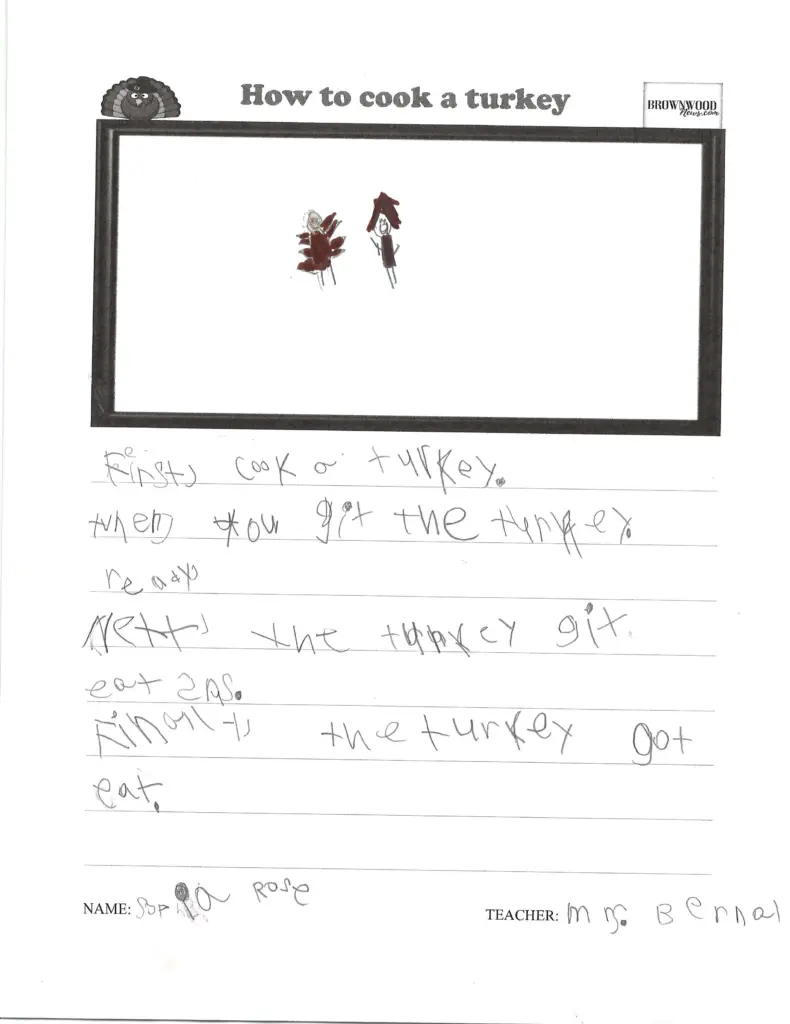 How to cook a turkey
BROWNWOOD
News.com
First, cook a turkey.
then you git the turkey.
ready
Nett, the turkey git.
eat
Finally, the turkey got
eat.
NAME: Rose
TEACHER: Mrs. Bernal